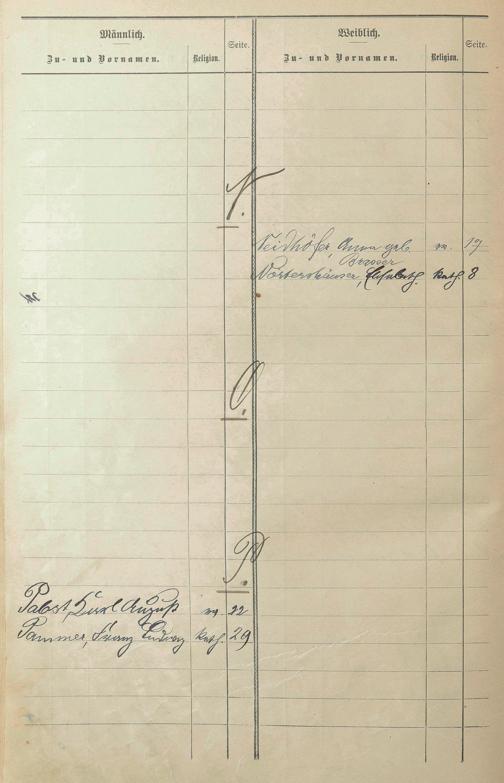 Männlich.
Zu- und Vornamen. Religion. Seite.
Weiblich.
Zu- und Vornamen. Religion. Seite.
N.
Neidhöfer, Anna geb. ev. 19
Nörtershäuser, Elisabeth. kath. 8
O.
P.
Pabst, Karl August ev. 22
Pammer, Franz Ludwig kath. 29